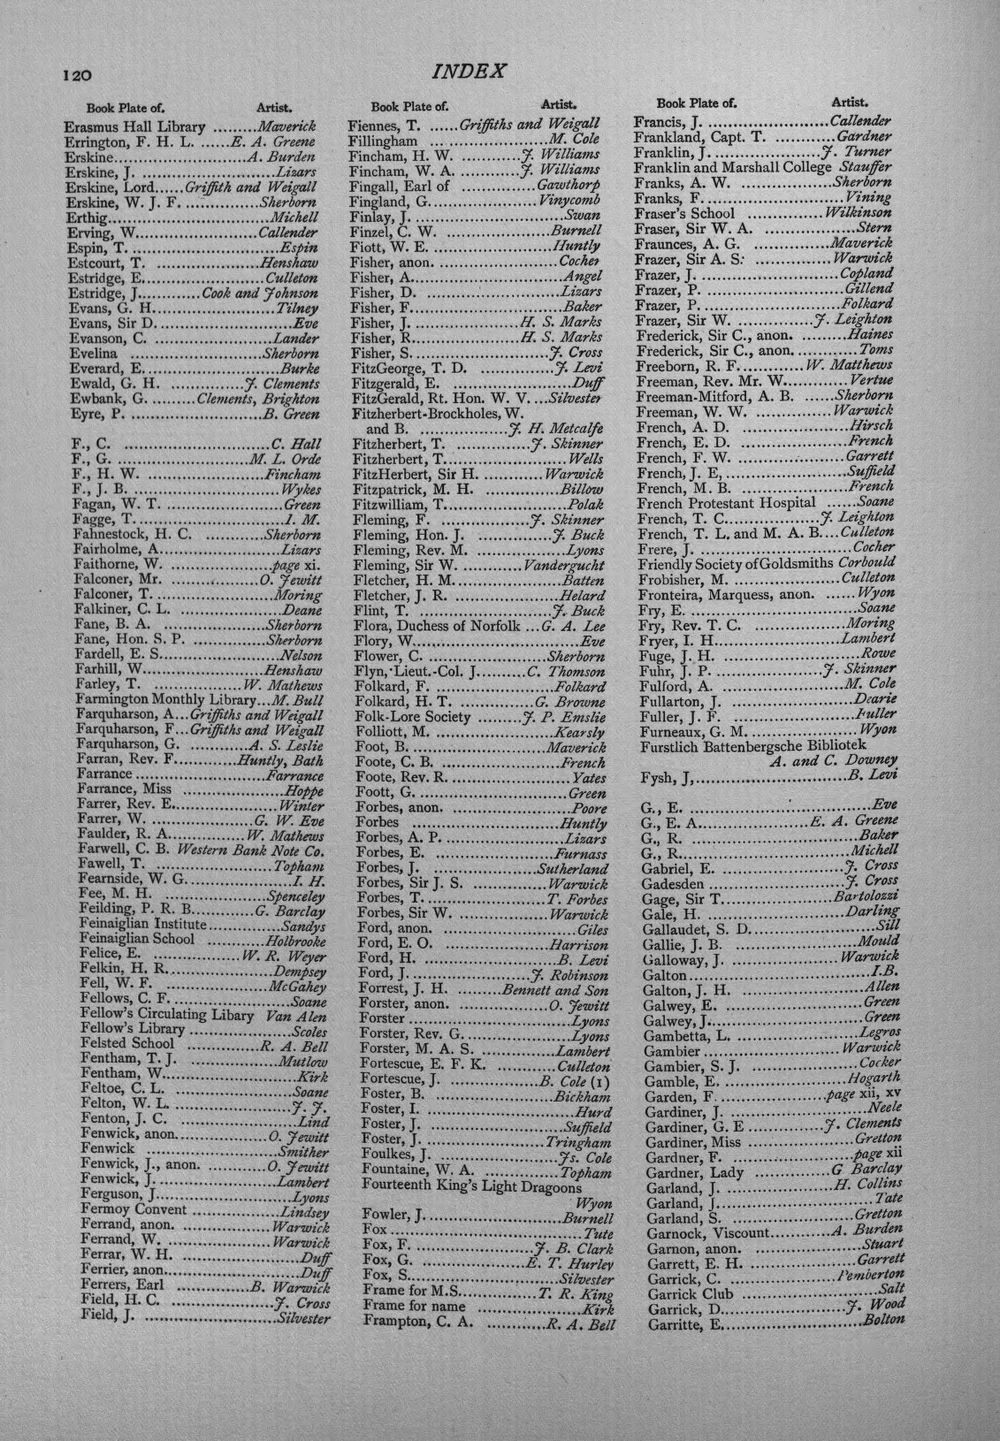 120
INDEX
Book Plate of. Artist.
Erasmus Hall Library .........Maverick
Errington, F. H. L. ......E. A. Greene
Erskine...........................A. Burden
Erskine, J. .............................Lizars
Erskine, Lord......Griffith and Weigall
Erskine, W. J. F. ................Sherborn
Erthig...................................Michell
Erving, W..........................Callender
Espin, T. ...............................Espin
Estcourt, T. .........................Henshaw
Estridge, E..........................Culleton
Estridge, J.............Cook and Johnson
Evans, G. H...........................Tilney
Evans, Sir D.............................Eve
Evanson, C. ..........................Lander
Evelina ............................Sherborn
Everard, E.............................Burke
Ewald, G. H. ...............J. Clements
Ewbank, G. .........Clements, Brighton
Eyre, P. .............................B. Green
F., C. ...............................C. Hall
F., G. ............................M. L. Orde
F., H. W. .........................Fincham
F., J. B. ................................Wykes
Fagan, W. T. ..........................Green
Fagge, T................................I. M.
Fahnestock, H. C. ............Sherborn
Fairholme, A..........................Lizars
Faithorne, W. ......................page xi.
Falconer, Mr. ...................O. Jewitt
Falconer, T. .........................Moring
Falkiner, C. L. .......................Deane
Fane, B. A. .......................Sherborn
Fane, Hon. S. P. ...............Sherborn
Fardell, E. S..........................Nelson
Farhill, W.........................Henshaw
Farley, T. ...................W. Mathews
Farmington Monthly Library...M. Bull
Farquharson, A...Griffiths and Weigall
Farquharson, F...Griffiths and Weigall
Farquharson, G. .............A. S. Leslie
Farran, Rev. F.............Huntly, Bath
Farrance ............................Farrance
Farrance, Miss ........................Hoppe
Farrer, Rev. E.......................Winter
Farrer, W. .......................G. W. Eve
Faulder, R. A.................W. Mathews
Farwell, C. B. Western Bank Note Co.
Fawell, T. ...........................Topham
Fearnside, W. G.......................I. H.
Fee, M. H. .......................Spenceley
Feilding, P. R. B.............G. Barclay
Feinaiglian Institute................Sandys
Feinaiglian School ............Holbrooke
Felice, E. ....................W. R. Weyer
Felkin, H. R.......................Dempsey
Fell, W. F. ......................McGahey
Fellows, C. F. .........................Soane
Fellow's Circulating Libary Van Alen
Fellow's Library ......................Scoles
Felsted School ...............R. A. Bell
Fentham, T. J. ......................Mutlow
Fentham, W.............................Kirk
Feltoe, C. L. ..........................Soane
Felton, W. L. ..........................J. J.
Fenton, J. C. ............................Lind
Fenwick, anon...................O. Jewitt
Fenwick ..............................Smither
Fenwick, J., anon. ............O. Jewitt
Fenwick, J...........................Lambert
Ferguson, J.............................Lyons
Fermoy Convent ...................Lindsey
Ferrand, anon. ...................Warwick
Ferrand, W. ......................Warwick
Ferrar, W. H. ...........................Duff
Ferrier, anon.............................Duff
Ferrers, Earl ..................B. Warwick
Field, H. C. ......................J. Cross
Field, J. .............................Silvester
Book Plate of. Artist.
Fiennes, T. ......Griffiths and Weigall
Fillingham ........................M. Cole
Fincham, H. W. ............J. Williams
Fincham, W. A. ............J. Williams
Fingall, Earl of ................Gawthorp
Fingland, G.......................Vinycomb
Finlay, J. ................................Swan
Finzel, C. W. .......................Burnell
Fiott, W. E. ..........................Huntly
Fisher, anon. ..........................Cocher
Fisher, A.................................Angel
Fisher, D. ..............................Lizars
Fisher, F.................................Baker
Fisher, J. .......................H. S. Marks
Fisher, R........................H. S. Marks
Fisher, S. ............................J. Cross
FitzGeorge, T. D. ...............J. Levi
Fitzgerald, E. ...........................Duff
FitzGerald, Rt. Hon. W. V. ...Silvester
Fitzherbert-Brockholes, W.
and B. ...................J. H. Metcalfe
Fitzherbert, T. ................J. Skinner
Fitzherbert, T...........................Wells
FitzHerbert, Sir H. ............Warwick
Fitzpatrick, M. H. ................Billow
Fitzwilliam, T..........................Polak
Fleming, F. ....................J. Skinner
Fleming, Hon. J. ................J. Buck
Fleming, Rev. M. ....................Lyons
Fleming, Sir W. ............Vandergucht
Fletcher, H. M........................Batten
Fletcher, J. R. ........................Helard
Flint, T. ..............................J. Buck
Flora, Duchess of Norfolk ...G. A. Lee
Flory, W....................................Eve
Flower, C. .........................Sherborn
Flyn, Lieut.-Col. J..........C. Thomson
Folkard, F. ..........................Folkard
Folkard, H. T. .................G. Browne
Folk-Lore Society .........J. P. Emslie
Folliott, M. .........................Kearsly
Foot, B. .............................Maverick
Foote, C. B. .........................French
Foote, Rev. R. .........................Yates
Foott, G. ................................Green
Forbes, anon. .........................Poore
Forbes ................................Huntly
Forbes, A. P. ..........................Lizars
Forbes, E. ...........................Furnass
Forbes, J. ........................Sutherland
Forbes, Sir J. S. ................Warwick
Forbes, T. .........................T. Forbes
Forbes, Sir W. ...................Warwick
Ford, anon. .............................Giles
Ford, E. O. ........................Harrison
Ford, H. .............................B. Levi
Ford, J. ........................J. Robinson
Forrest, J. H. .........Bennett and Son
Forster, anon. ....................O. Jewitt
Forster ..................................Lyons
Forster, Rev. G........................Lyons
Forster, M. A. S. ................Lambert
Fortescue, E. F. K. ............Culleton
Fortescue, J. ....................B. Cole (1)
Foster, B. ..........................Bickham
Foster, I. ................................Hurd
Foster, J. .............................Suffield
Foster, J. .........................Tringham
Foulkes, J. ...........................Js. Cole
Fountaine, W. A. ...............Topham
Fourteenth King's Light Dragoons
Wyon
Fowler, J.............................Burnell
Fox ........................................Tute
Fox, F. ........................J. B. Clark
Fox, G. .......................E. T. Hurley
Fox, S...............................Silvester
Frame for M.S.................T. R. King
Frame for name ......................Kirk
Frampton, C. A. ............R. A. Bell
Book Plate of. Artist.
Francis, J. .........................Callender
Frankland, Capt. T. ............Gardner
Franklin, J. .......................J. Turner
Franklin and Marshall College Stauffer
Franks, A. W. ...................Sherborn
Franks, F. .............................Vining
Fraser's School ................Wilkinson
Fraser, Sir W. A. ...................Stern
Fraunces, A. G. ................Maverick
Frazer, Sir A. S. ................Warwick
Frazer, J. ............................Copland
Frazer, P. .............................Gillend
Frazer, P. ............................Folkard
Frazer, Sir W. ................J. Leighton
Frederick, Sir C., anon. .........Haines
Frederick, Sir C., anon. ............Toms
Freeborn, R. F..............W. Matthews
Freeman, Rev. Mr. W.............Vertue
Freeman-Mitford, A. B. ......Sherborn
Freeman, W. W. ................Warwick
French, A. D. ........................Hirsch
French, E. D. ........................French
French, F. W. ......................Garrett
French, J. E, .........................Suffield
French, M. B. ......................French
French Protestant Hospital ......Soane
French, T. C....................J. Leighton
French, T. L. and M. A. B....Culleton
Frere, J. ................................Cocher
Friendly Society of Goldsmiths Corbould
Frobisher, M. ......................Culleton
Fronteira, Marquess, anon. ......Wyon
Fry, E. ..................................Soane
Fry, Rev. T. C. .....................Moring
Fryer, I. H..........................Lambert
Fuge, J. H. ............................Rowe
Fuhr, J. P. ......................J. Skinner
Fulford, A. ...........................M. Cole
Fullarton, J. ..........................Dearie
Fuller, J. F. ..........................Fuller
Furneaux, G. M. .....................Wyon
Furstlich Battenbergsche Bibliotek
A. and C. Downey
Fysh, J,...............................B. Levi
G., E. .....................................Eve
G., E. A.......................E. A. Greene
G., R. ...................................Baker
G., R...................................Michell
Gabriel, E. ..........................J. Cross
Gadesden ............................J. Cross
Gage, Sir T.......................Bartolozzi
Gale, H. .............................Darling
Gallaudet, S. D..........................Sill
Gallie, J. B. ..........................Mould
Galloway, J. ......................Warwick
Galton.....................................I.B.
Galton, J. H. ..........................Allen
Galwey, E. ............................Green
Galwey, J................................Green
Gambetta, L. .........................Legros
Gambier ............................Warwick
Gambier, S. J. .......................Cocker
Gamble, E. ..........................Hogarth
Garden, F. ......................page xii, xv
Gardiner, J. ............................Neele
Gardiner, G. E ...............J. Clements
Gardiner, Miss ......................Gretton
Gardner, F. .........................page xii
Gardner, Lady ................G Barclay
Garland, J. ......................H. Collins
Garland, J................................Tate
Garland, S. .........................Gretton
Garnock, Viscount............A. Burden
Garnon, anon. ......................Stuart
Garrett, E. H. ......................Garrett
Garrick, C. .......................Pemberton
Garrick Club ...........................Salt
Garrick, D.........................J. Wood
Garritte, E............................Bolton